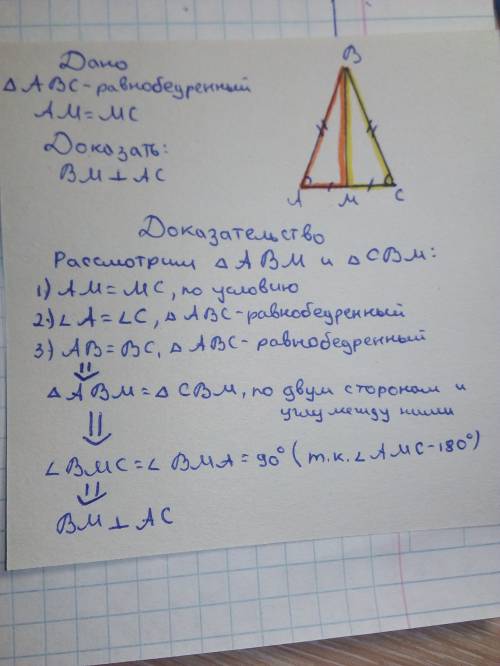 Дано
△ ABC - равнобедренный
AM = MC
Доказать:
BM ⊥ AC
B
A M C
Доказательство
Рассмотрим △ ABM и △ CBM:
1) AM = MC, по условию
2) ∠A = ∠C, △ ABC - равнобедренный
3) AB = BC, △ ABC - равнобедренный
⇓
△ ABM = △ CBM, по двум сторонам и
углу между ними
⇓
∠ BMC = ∠ BMA = 90° (т.к. ∠ AMC - 180°)
⇓
BM ⊥ AC